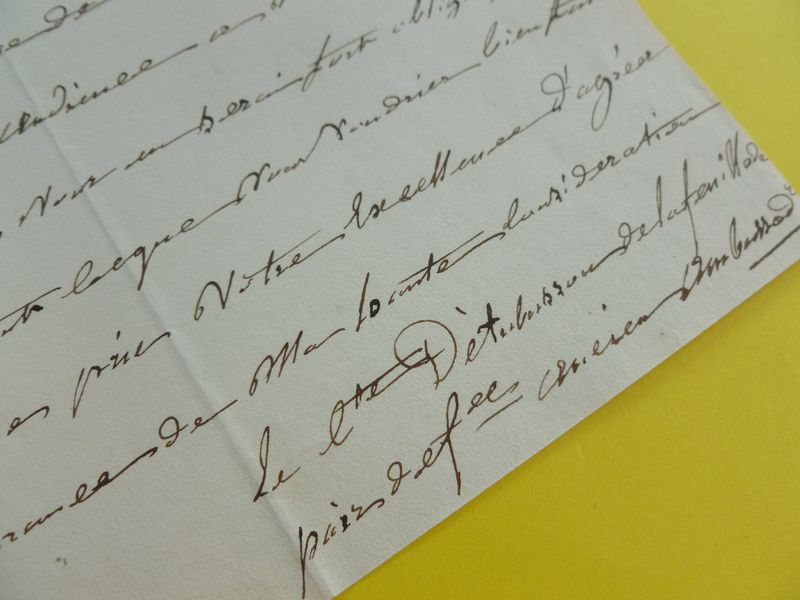 audience
vous en serai fort oblig
lacque vous voudrier bien
prie Votre Excellence d'agréer
de Ma haute Considération
Le Cte D'Aubusson de lafeuillade
pair de fce ancien ambassadr